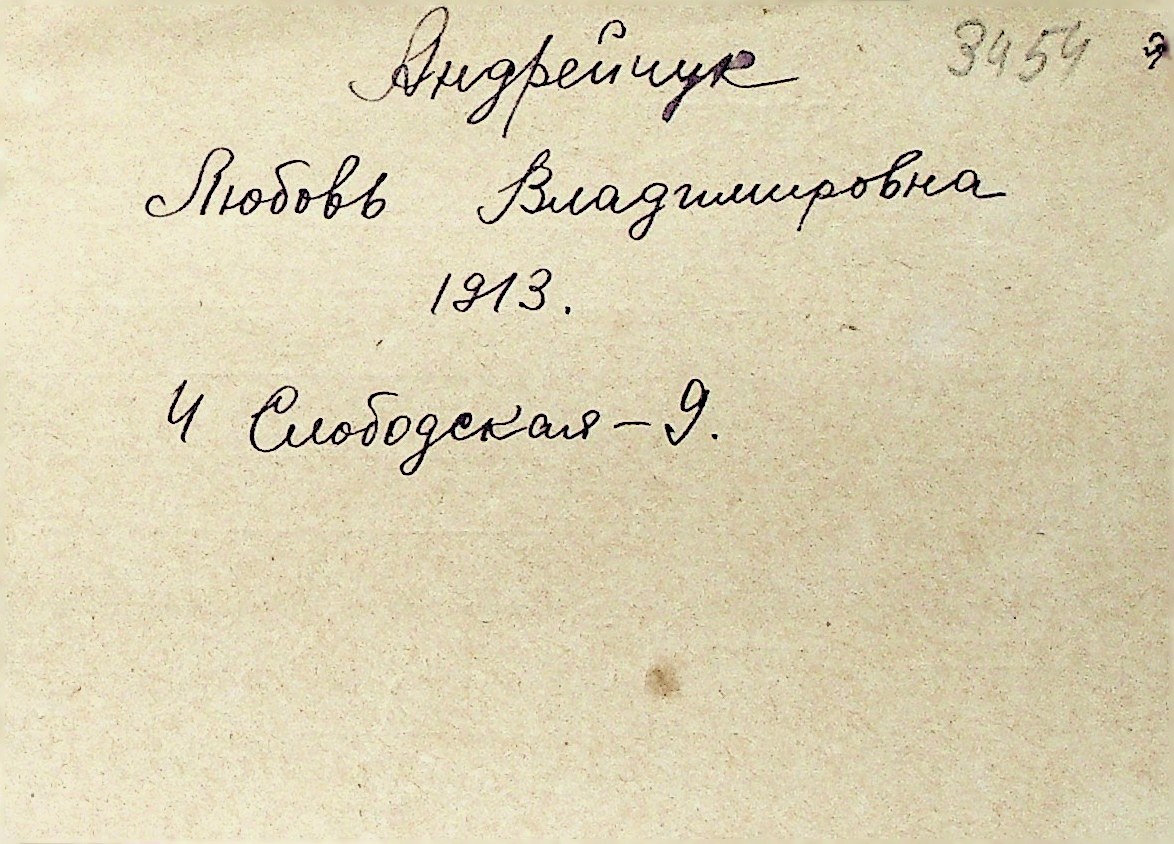 Андрейчук 3454
Любовь Владимировна
1913.
4 Слободская – 9.